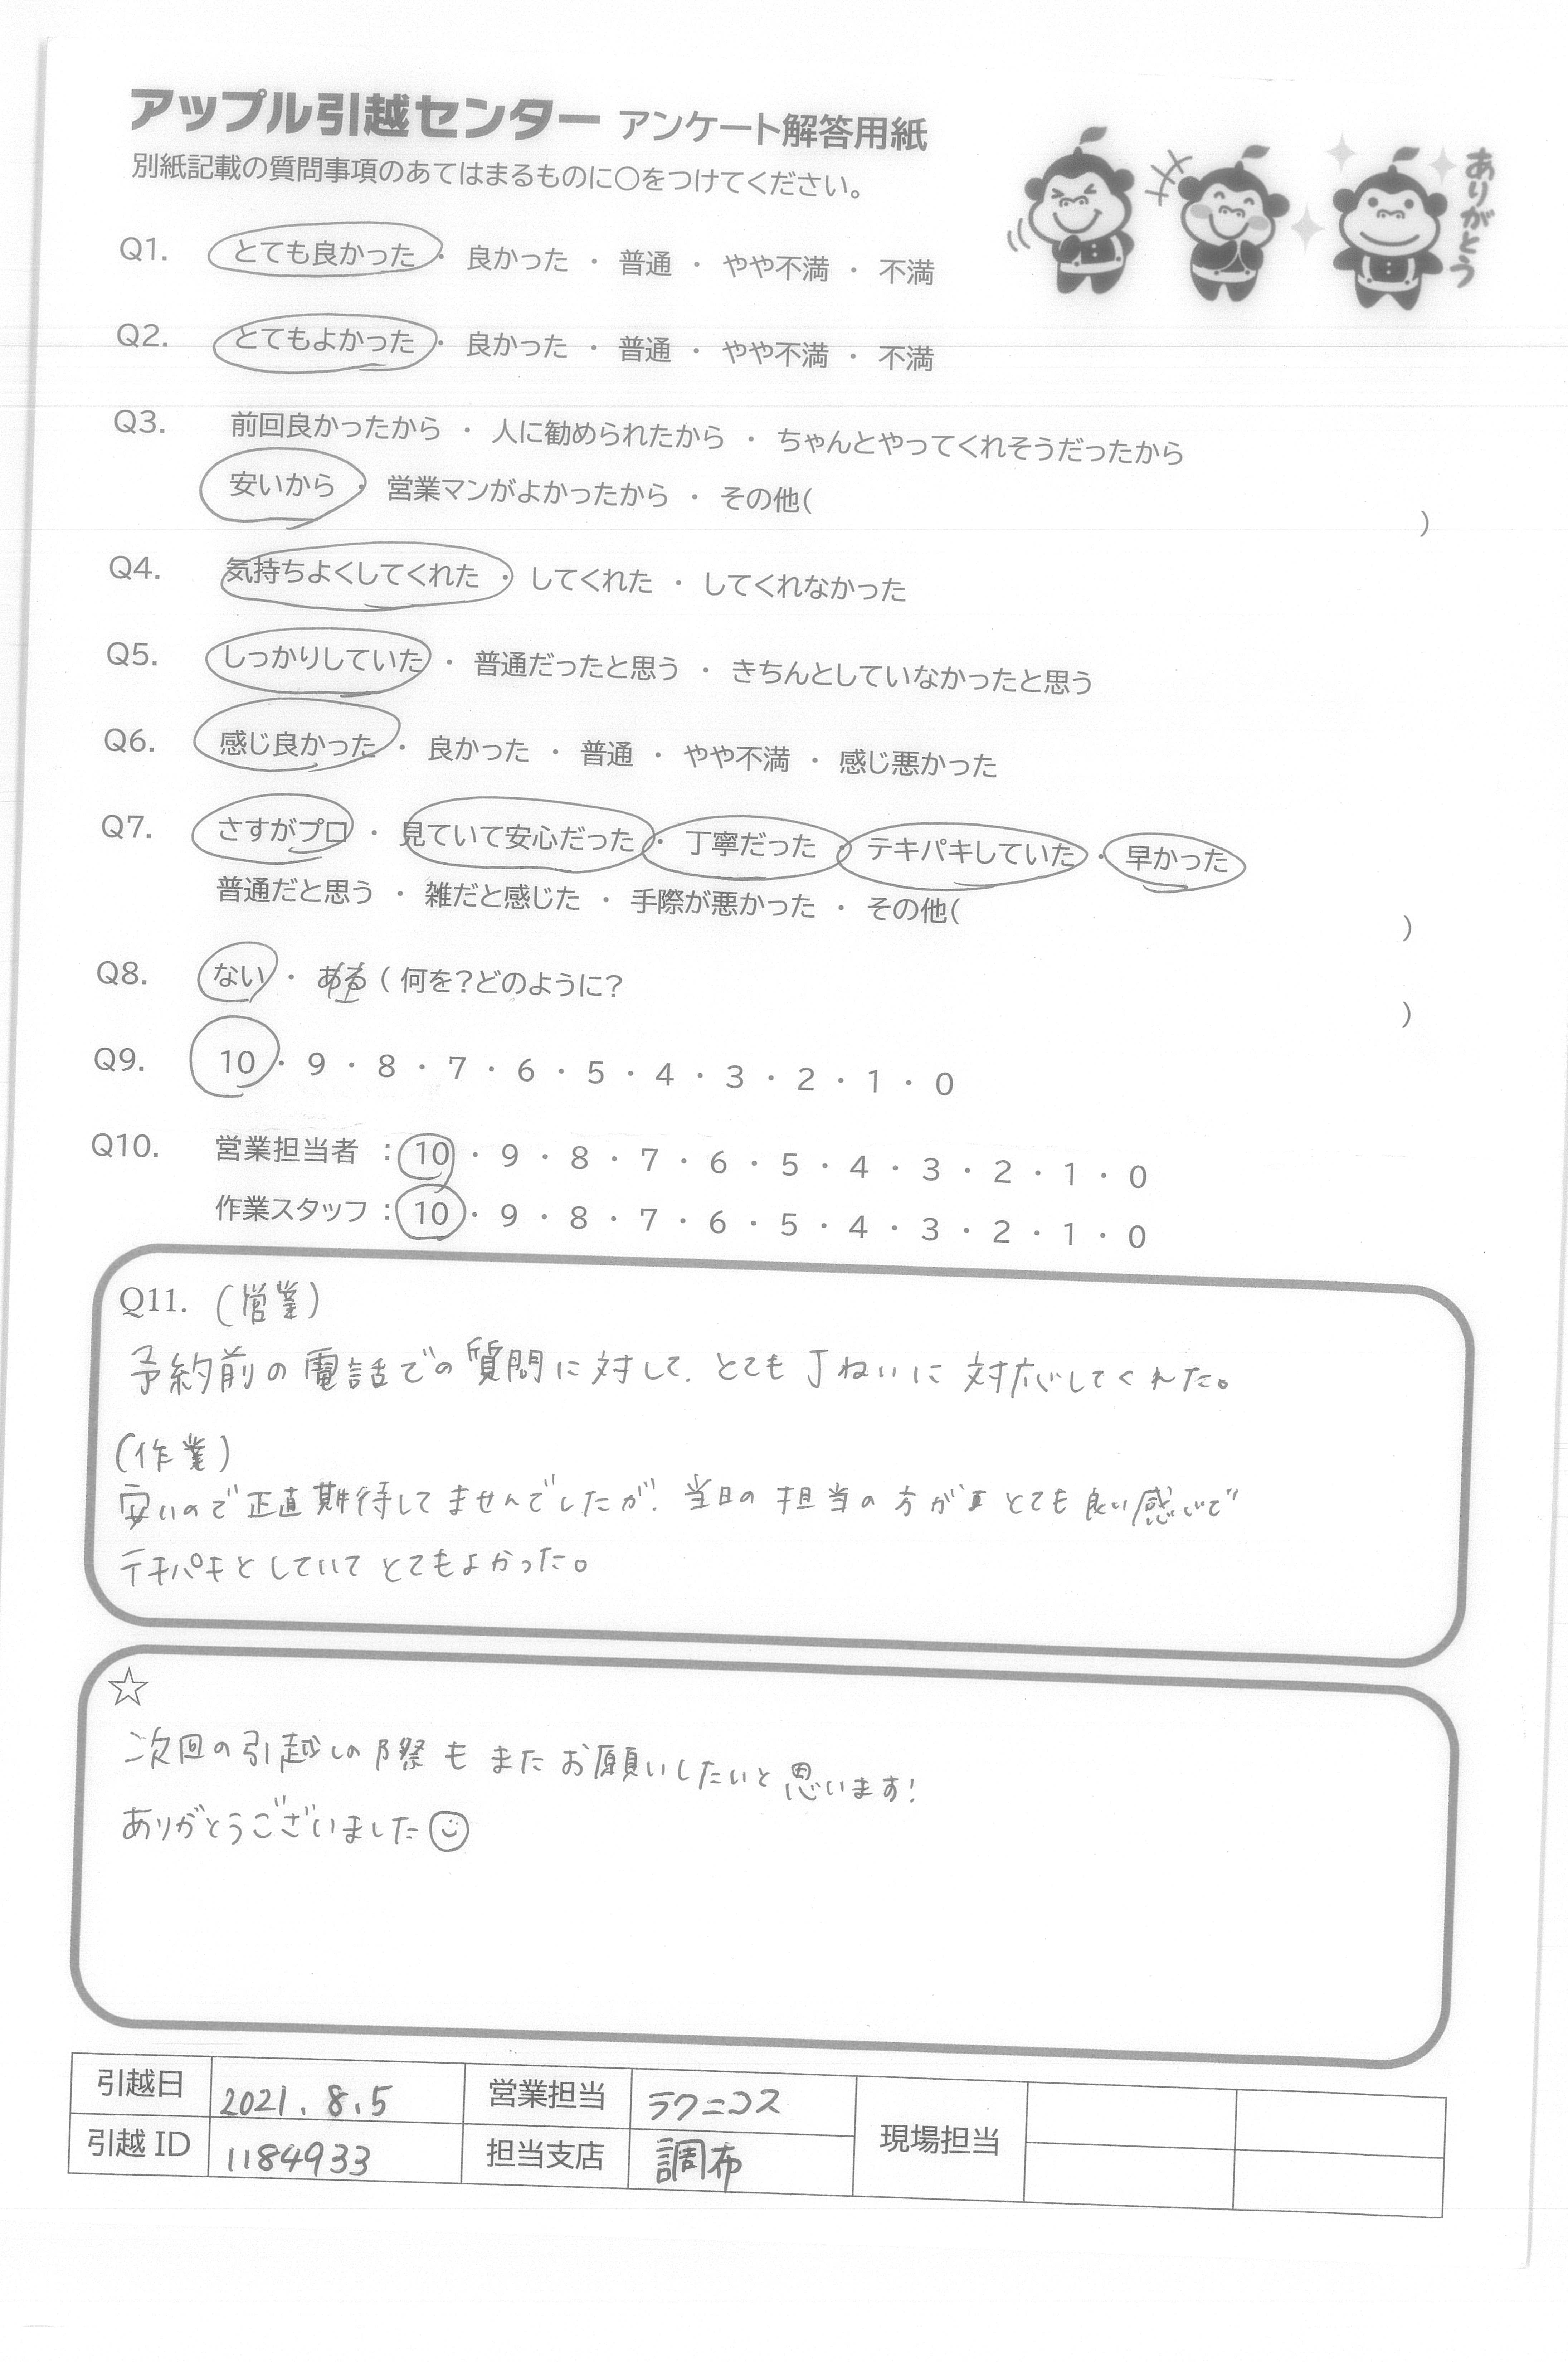 アップル引越センター アンケート解答用紙
別紙記載の質問事項のあてはまるものに○をつけてください。
ありがとう
Q1. とても良かった ・ 良かった ・ 普通 ・ やや不満 ・ 不満
Q2. とてもよかった ・ 良かった ・ 普通 ・ やや不満 ・ 不満
Q3. 前回良かったから ・ 人に勧められたから ・ ちゃんとやってくれそうだったから
安いから ・ 営業マンがよかったから ・ その他( )
Q4. 気持ちよくしてくれた ・ してくれた ・ してくれなかった
Q5. しっかりしていた ・ 普通だったと思う ・ きちんとしていなかったと思う
Q6. 感じ良かった ・ 良かった ・ 普通 ・ やや不満 ・ 感じ悪かった
Q7. さすがプロ ・ 見ていて安心だった ・ 丁寧だった ・ テキパキしていた ・ 早かった
普通だと思う ・ 雑だと感じた ・ 手際が悪かった ・ その他( )
Q8. ない ・ ある ( 何を?どのように? )
Q9. 10 ・ 9 ・ 8 ・ 7 ・ 6 ・ 5 ・ 4 ・ 3 ・ 2 ・ 1 ・ 0
Q10. 営業担当者 : 10 ・ 9 ・ 8 ・ 7 ・ 6 ・ 5 ・ 4 ・ 3 ・ 2 ・ 1 ・ 0
作業スタッフ : 10 ・ 9 ・ 8 ・ 7 ・ 6 ・ 5 ・ 4 ・ 3 ・ 2 ・ 1 ・ 0
Q11. (営業)
予約前の電話での質問に対して、とても丁ねいに対応してくれた。
(作業)
安いので正直期待してませんでしたが、当日の担当の方がとても良い感じで
テキパキとしていてとてもよかった。
☆
次回の引越しの際もまたお願いしたいと思います!
ありがとうございました☺
引越日 2021.8.5 営業担当 ラクニコス 現場担当
引越ID 1184933 担当支店 調布